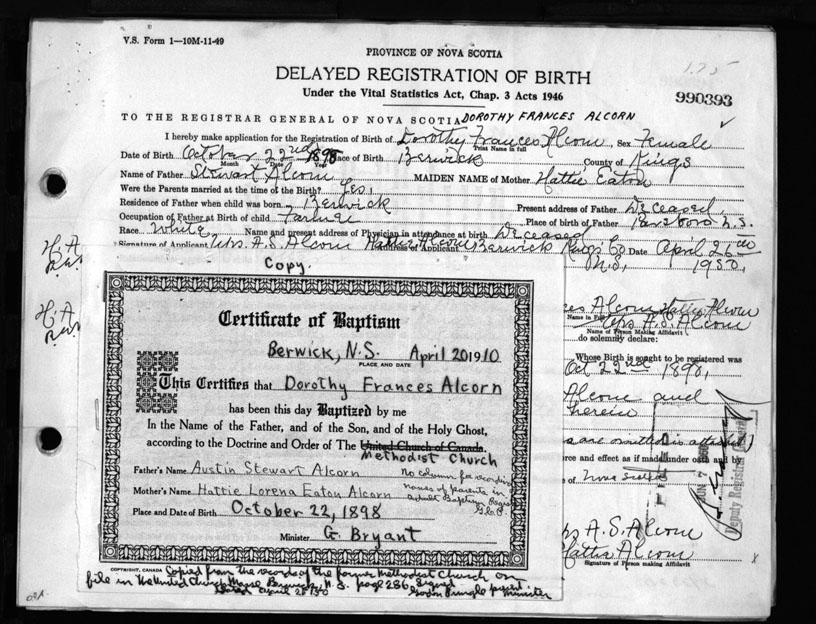 V.S. Form 1—10M-11-49
PROVINCE OF NOVA SCOTIA
175
DELAYED REGISTRATION OF BIRTH
Under the Vital Statistics Act, Chap. 3 Acts 1946
990393
TO THE REGISTRAR GENERAL OF NOVA SCOTIA DOROTHY FRANCES ALCORN
I hereby make application for the Registration of Birth of Dorothy Frances Alcorn, Sex Female
Print Name in full
Date of Birth October 22nd 1898 Place of Birth Berwick County of Kings
Month Date Year
Name of Father Stewart Alcorn MAIDEN NAME of Mother Hattie Eaton
Were the Parents married at the time of the Birth? Yes.
Residence of Father when child was born Berwick Present address of Father Deceased.
Occupation of Father at Birth of child Farmer Place of birth of Father Parrsboro N.S.
Race White Name and present address of Physician in attendance at birth Deceased
Signature of Applicant Mrs. A.S. Alcorn Hattie Alcorn Address of Applicant Berwick Kings Co. Date April 26th
N.S. 1950.
H.A.
H.A.
Copy.
Certificate of Baptism
Berwick, N.S. April 20 1910
PLACE AND DATE
This Certifies that Dorothy Frances Alcorn
has been this day Baptized by me
In the Name of the Father, and of the Son, and of the Holy Ghost,
according to the Doctrine and Order of The United Church of Canada.
Methodist Church
Father's Name Austin Stewart Alcorn
Mother's Name Hattie Lorena Eaton Alcorn
No column for recording
names of parents in
adult Baptism
Place and Date of Birth October 22, 1898
Minister G. Bryant
COPYRIGHT, CANADA
Copied from the records of the former Methodist Church on
file in the United Church Manse Berwick, N.S. page 286. Signed
Minister
Alcorn Hattie Alcorn
Name in Full
Mrs A.S. Alcorn
Name of Person Making Affidavit
do solemnly declare:
Whose Birth is sought to be registered was
Oct 22nd 1898,
Alcorn and
herein
are omitted is attached)
force and effect as if made under oath and by
of Nova Scotia
Deputy Registrar General
Mrs A.S. Alcorn
Hattie Alcorn
Signature of Person making Affidavit